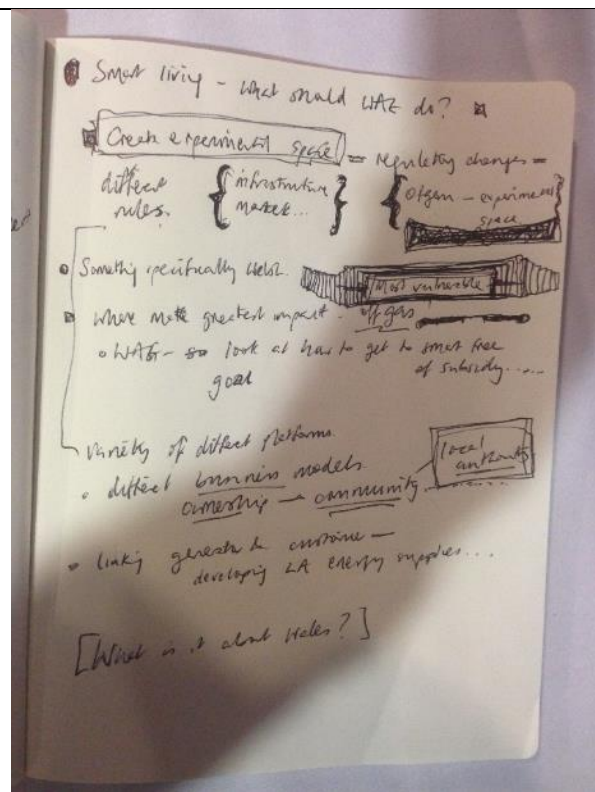 Smart living - what should WAG do?
Create experimental space = regulatory changes =
different rules. { infrastructure market... } { Ofgem - experimental space }
Something specifically Welsh.
Most vulnerable
where make greatest impact - off gas
WAG - so look at how to get to smart free of subsidy.....
goal
variety of different platforms.
different business models
ownership - community
local authority
linking generator & customer -
developing LA energy supplies...
[What is it about Wales?]